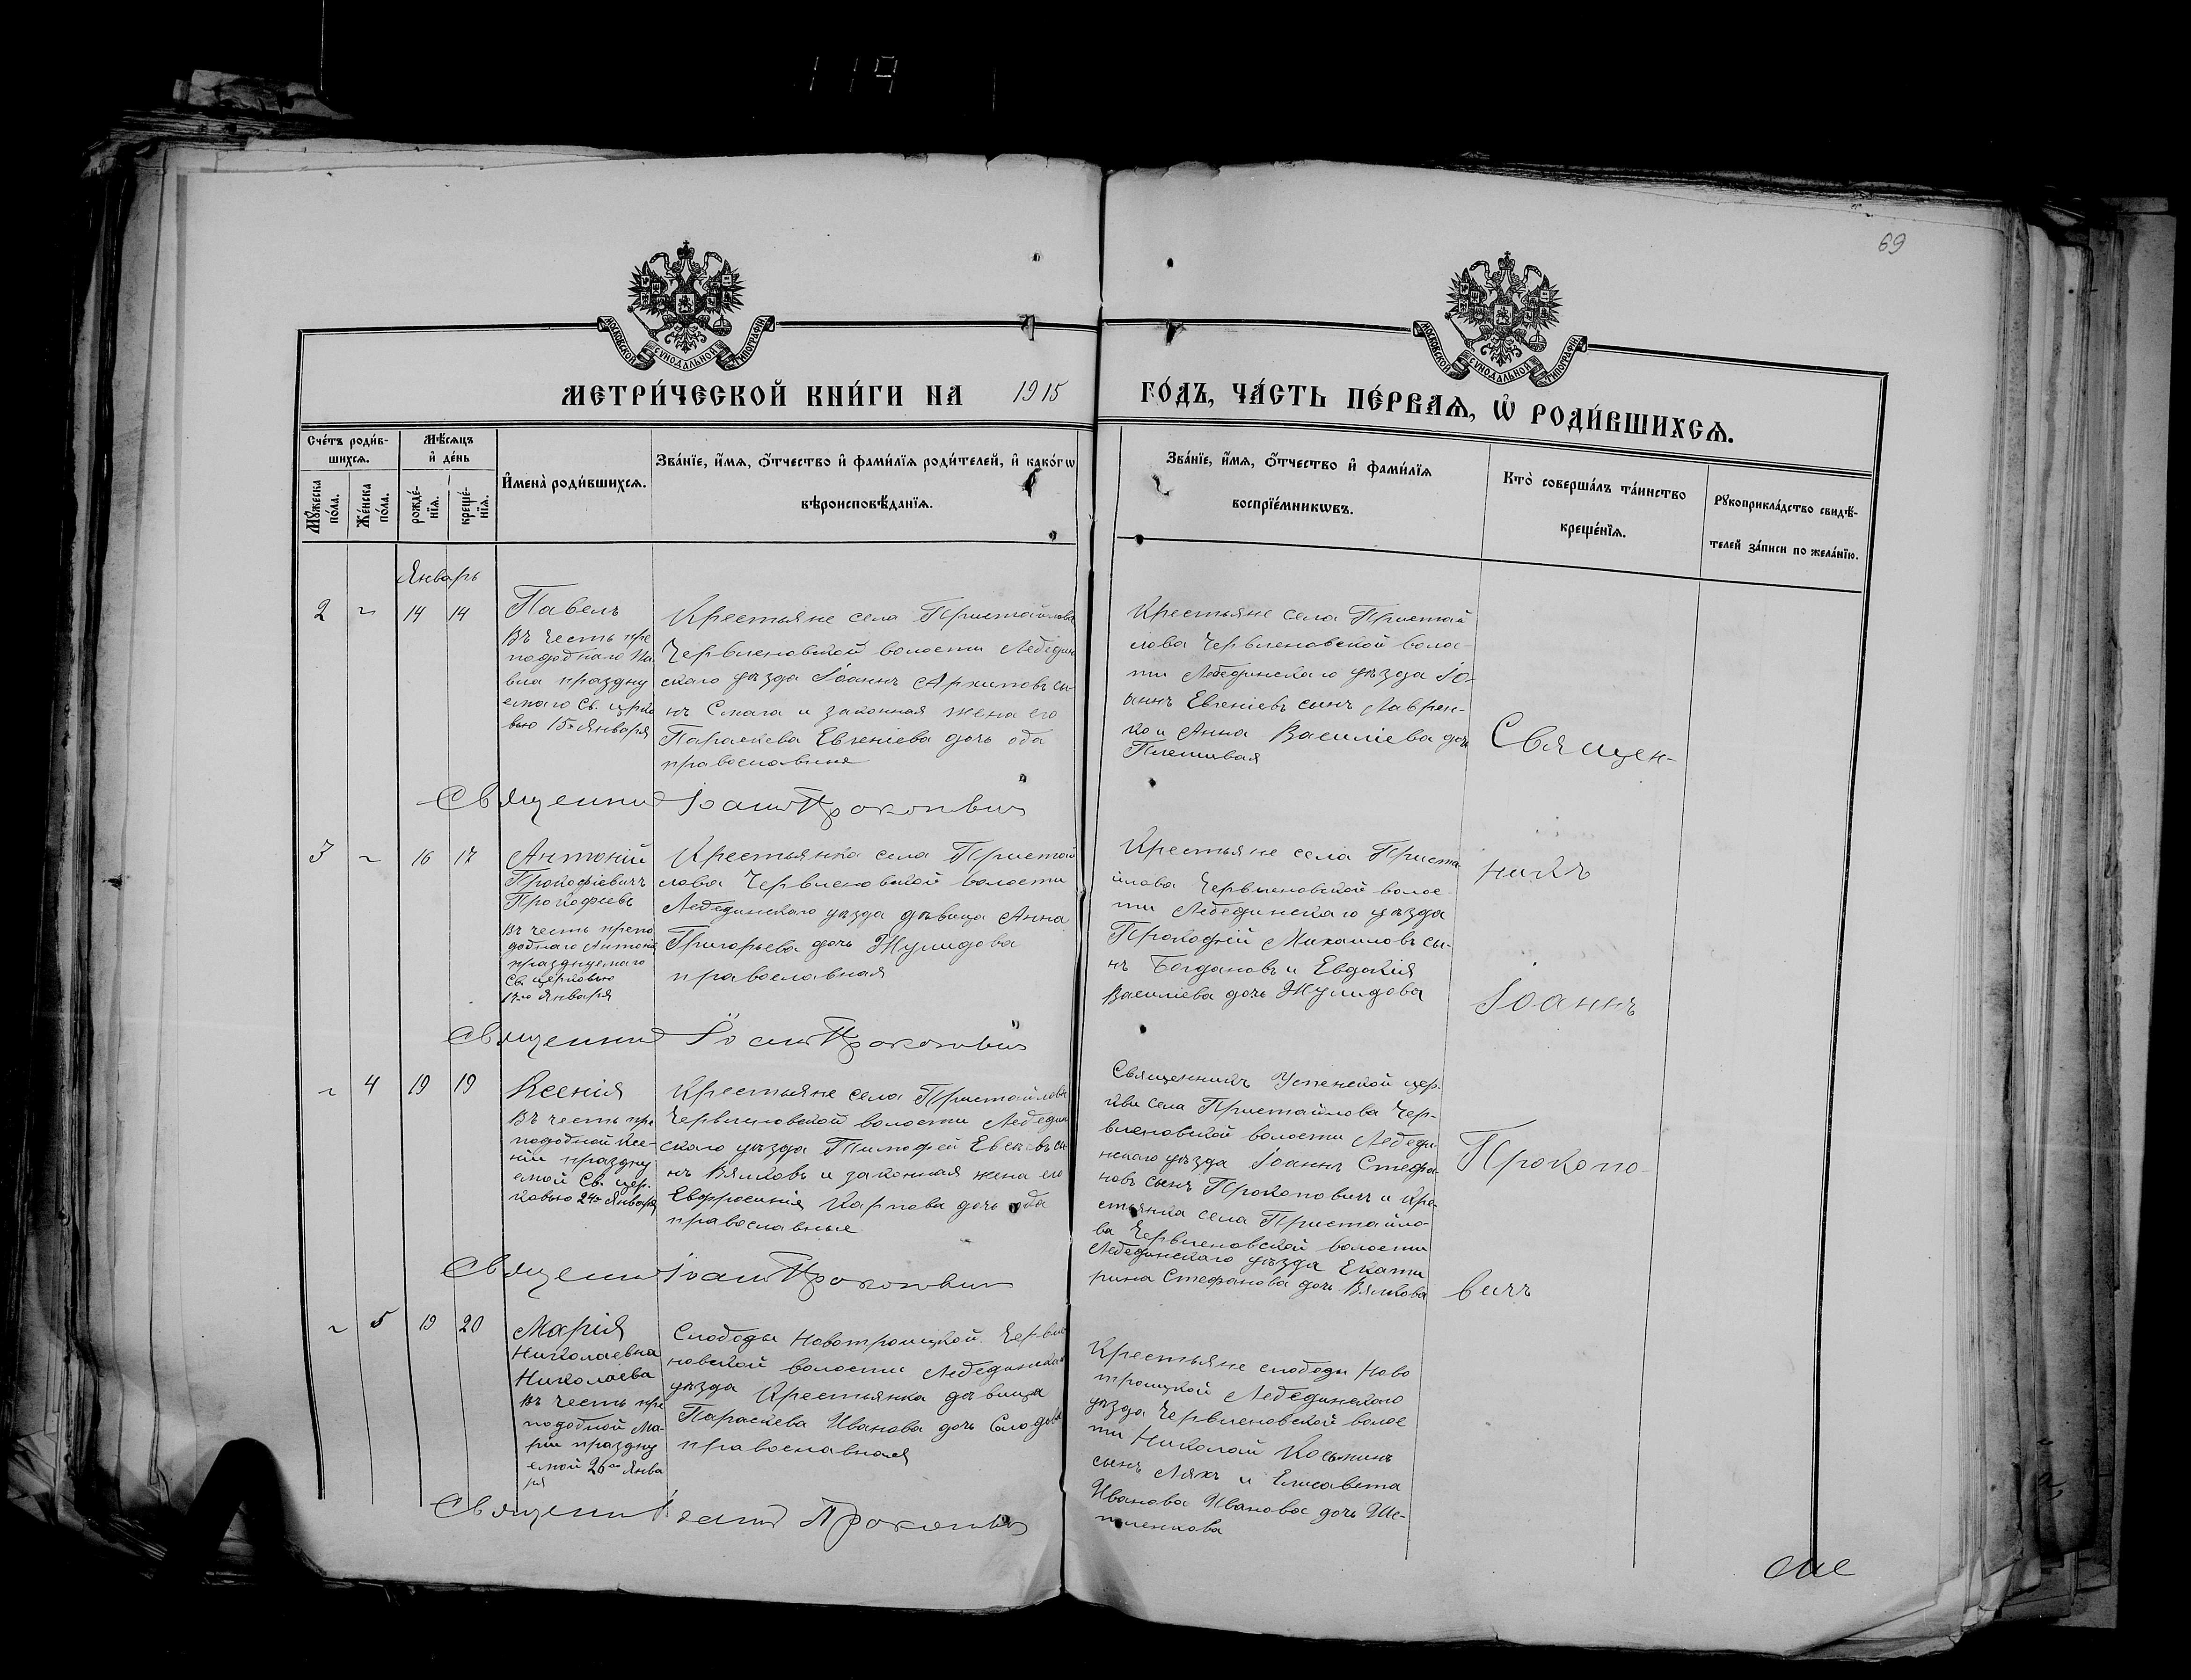 119
69
МОСКОВСКОЙ СѴНОДАЛЬНОЙ ТИПОГРАФІИ
МОСКОВСКОЙ СѴНОДАЛЬНОЙ ТИПОГРАФІИ
МЕТРИ́ЧЕСКОЙ КНИ́ГИ НА 1915
ГО́ДЪ, ЧА́СТЬ ПЕ́РВАѦ, Ѽ РОДИ́ВШИХСѦ.
Сче́тъ роди́в-
шихсѧ.
Мꙋ́жеска по́ла.
Же́нска по́ла.
Мѣ́сѧцъ и҆ де́нь
рожде́-
нїѧ.
креще́-
нїѧ.
И҆мена̀ роди́вшихсѧ.
Зва́нїе, и҆́мѧ, ѻ҆́тчество и҆ фами́лїѧ роди́телей, и҆ како́гѡ
вѣроисповѣ́данїѧ.
Зва́нїе, и҆́мѧ, ѻ҆́тчество и҆ фами́лїѧ
воспрїе́мникѡвъ.
Кто̀ соверша́лъ та́инство
креще́нїѧ.
Рꙋкоприкла́дство свидѣ́-
телей за́писи по жела́нїю.
Январь
2 ~ 14 14
Павелъ
Въ честь пре
подобнаго Па
вла праздну
емаго Св. церко
вью 15го Января
Крестьяне села Пристайлова
Червленовской волости Лебедин
скаго уѣзда Іоаннъ Архиповъ сы-
нъ Смага и законная жена его
Параскева Евгеніева дочь оба
православные
Крестьяне села Пристай
лова Червленовской воло-
ти Лебединскаго уѣзда Іо-
аннъ Евгеніевъ сынъ Лаврен-
ко и Анна Василіева дочь
Плешивая
Священ-
Священник Іоанн Прокопович
3 ~ 16 17
Антоній
Прокофіевичъ
Прокофьевъ
Въ честь препо
добнаго Антонія
празднуемаго
Св. церковью
17го Января
Крестьянка села Пристай
лова Червленовской волости
Лебединскаго уѣзда дѣвица Анна
Григорьева дочь Жулидова
православная
Крестьяне села Приста-
йлова Червленовской волос-
ти Лебединскаго уѣзда
Прокофій Михаиловъ сы-
нъ Богдановъ и Евдокія
Василіева дочь Жулидова
никъ
Іоаннъ
Священник Іоанн Прокопович
~ 4 19 19
Ксенія
Въ честь пре
подобной Ксе-
ніи праздну
емой Св. цер-
ковью 24го Января
Крестьяне села Пристайлова
Червленовской волости Лебедин
скаго уѣзда Тимофей сы-
нъ Вялковъ и законная жена его
Евфросинія Карпова дочь оба
православные
Священникъ Успенской цер-
кви села Пристайлова Чер-
вленовской волости Лебеди-
нскаго уѣзда Іоаннъ Стефа-
новъ сынъ Прокоповичъ и кре-
стьянка села Пристайло-
ва Червленовской волости
Лебединскаго уѣзда Екате
рина Стефанова дочь Вялкова
Прокопо-
вичъ
Священник Іоанн Прокопович
~ 5 19 20
Марія
Николаевна
Николаева
Въ честь пре
подобной Ма-
ріи праздну
емой 26го Янва
ря
Слободы Новотроицкой Червле
новской волости Лебединскаго
уѣзда Крестьянка дѣвица
Параскева Иванова дочь
православная
Крестьяне слободы Ново
троицкой Лебединскаго
уѣзда Червленовской волос
ти Николай Косьминъ
сынъ Ляхъ и Елисавета
Иванова Иванова дочь Ше-
Священник Іоанн Прокопович